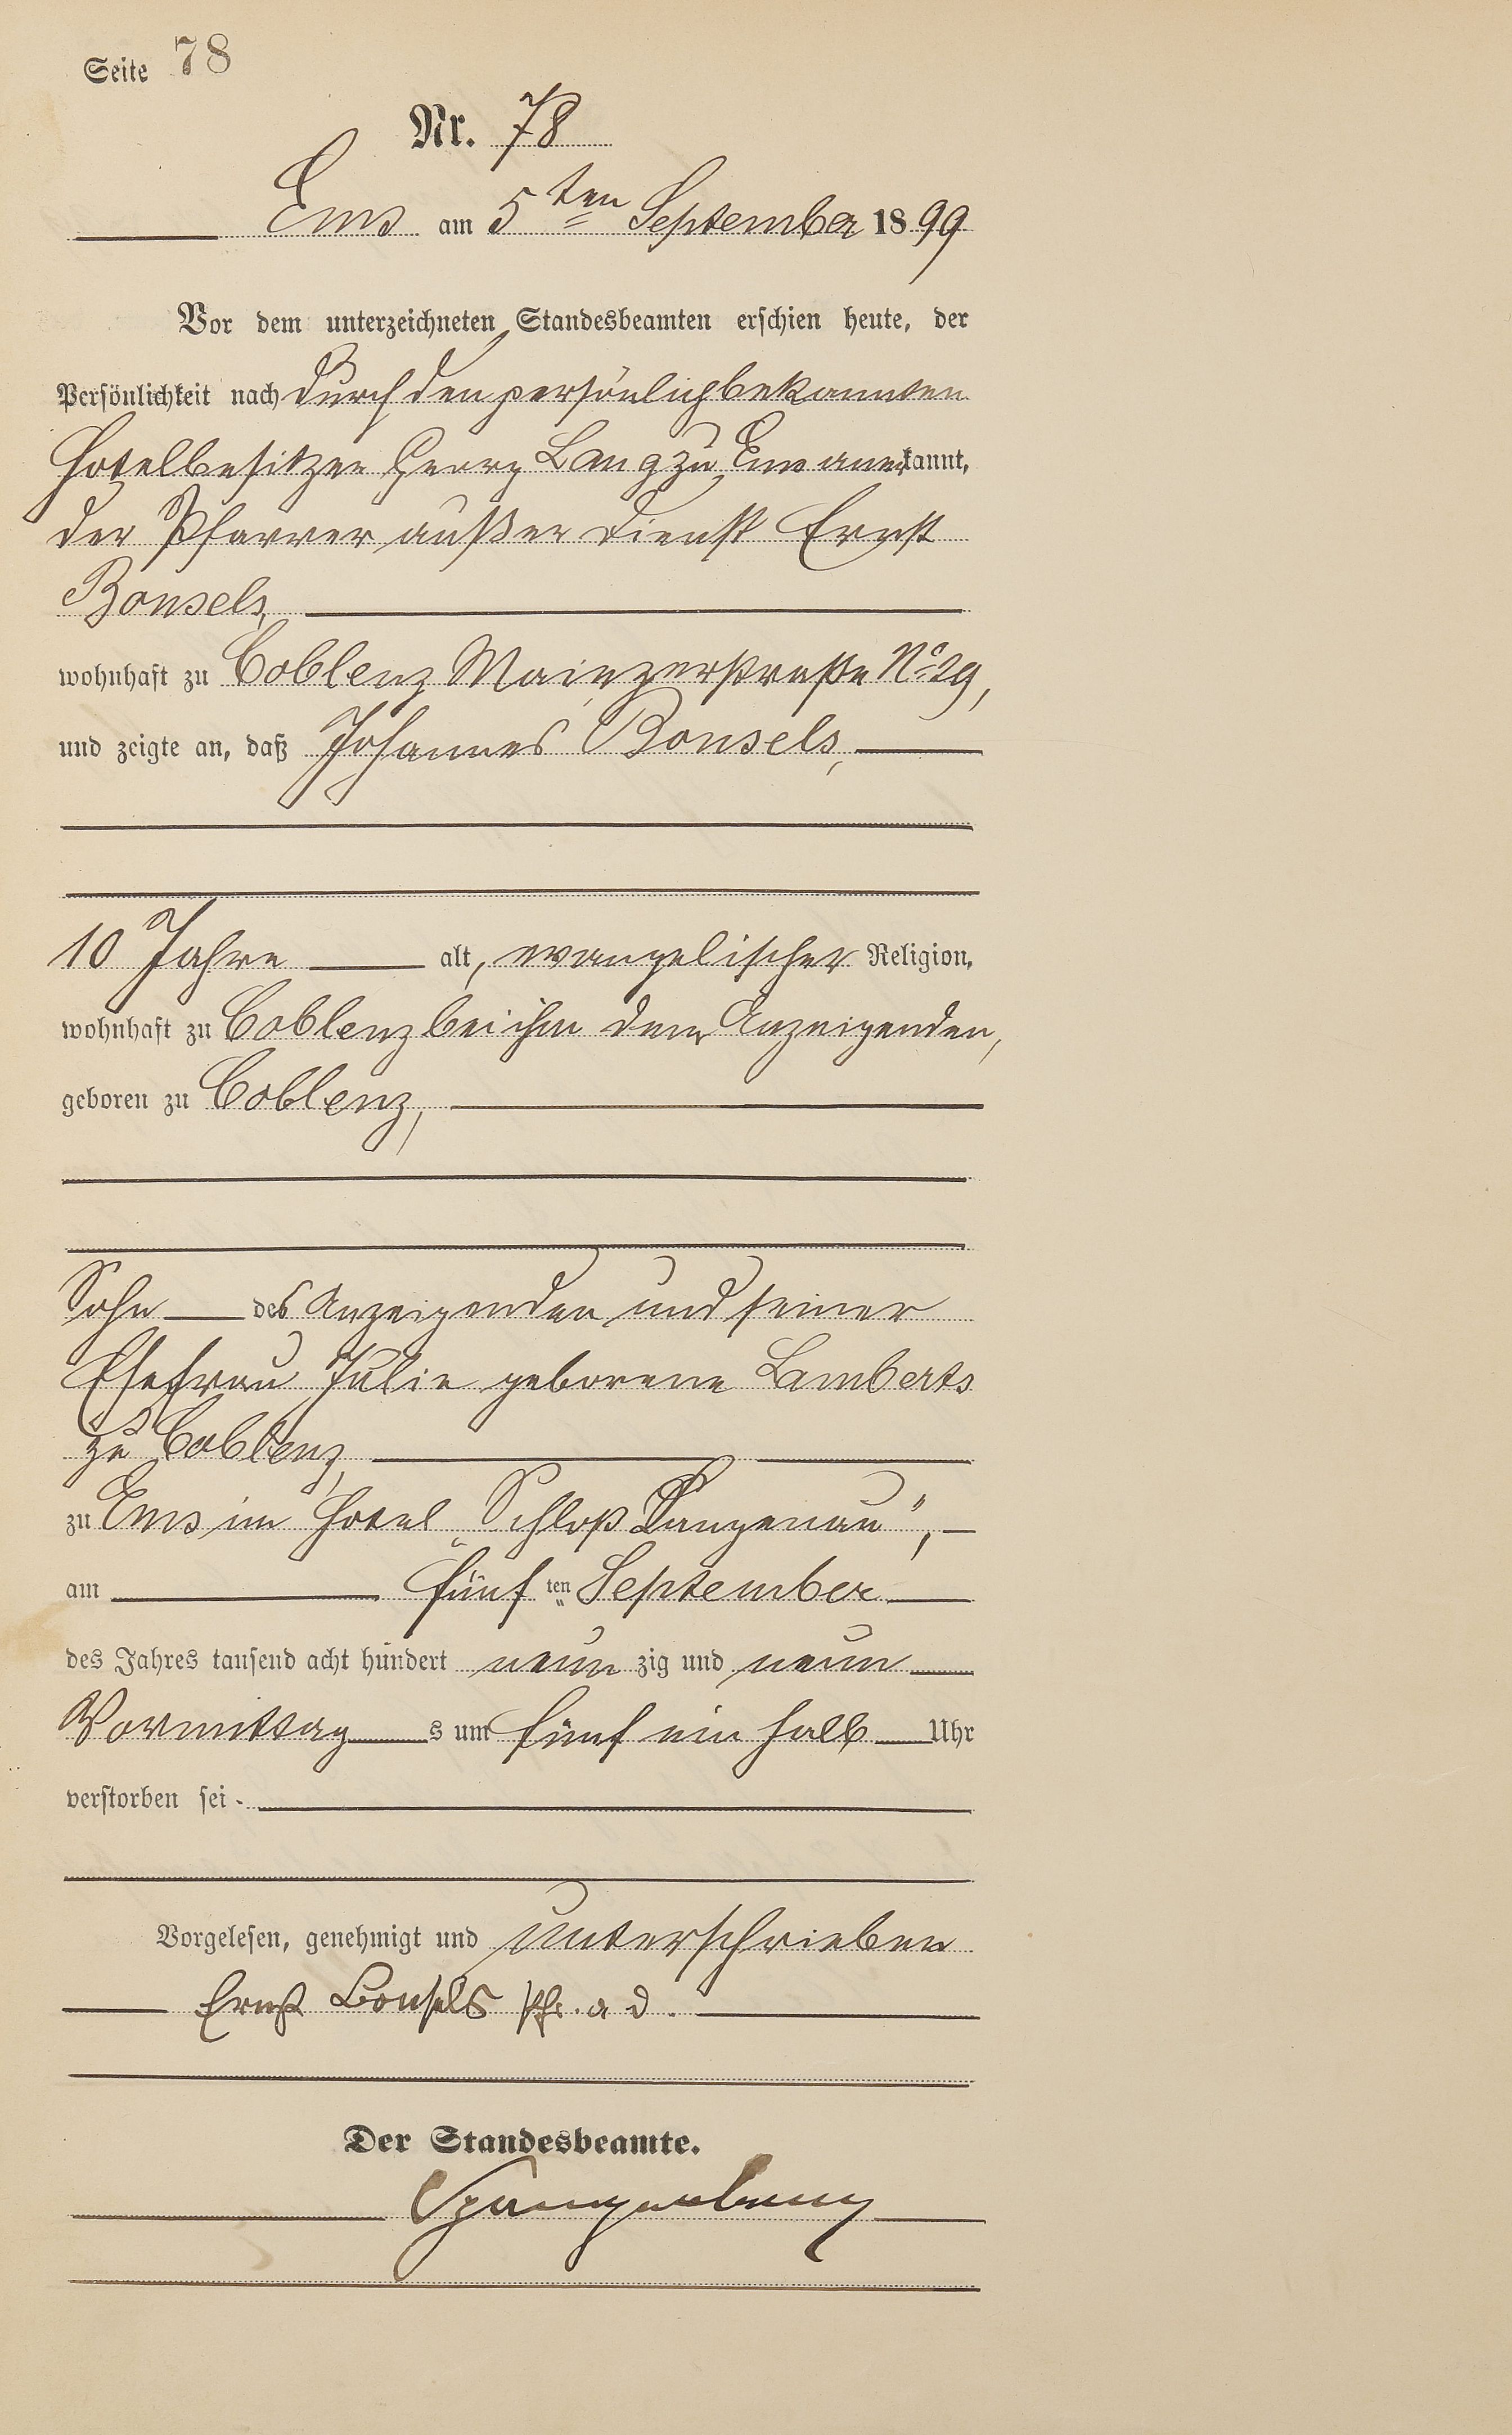 Seite 78
Nr. 78
Ems am 5ten September 1899
Vor dem unterzeichneten Standesbeamten erschien heute, der
Persönlichkeit nach durch den persönlich bekannten
Hotelbesitzer Georg Lang zu Ems anerkannt,
der Pfarrer außer Dienst Ernst
Bonsels,
wohnhaft zu Coblenz Mainzerstraße No 29,
und zeigte an, daß Johannes Bonsels,
10 Jahre alt, evangelischer Religion,
wohnhaft zu Coblenz bei ihm dem Anzeigenden,
geboren zu Coblenz,
Sohn des Anzeigenden und seiner
Ehefrau Julie geborene Lamberts
zu Coblenz,
zu Ems im Hotel „Schloß Langenau",
am fünf ten September
des Jahres tausend acht hundert neun zig und neun
Vormittag s um fünf ein halb Uhr
verstorben sei.
Vorgelesen, genehmigt und unterschrieben
Ernst Bonsels Pfr. a d.
Der Standesbeamte.
Spangenberg